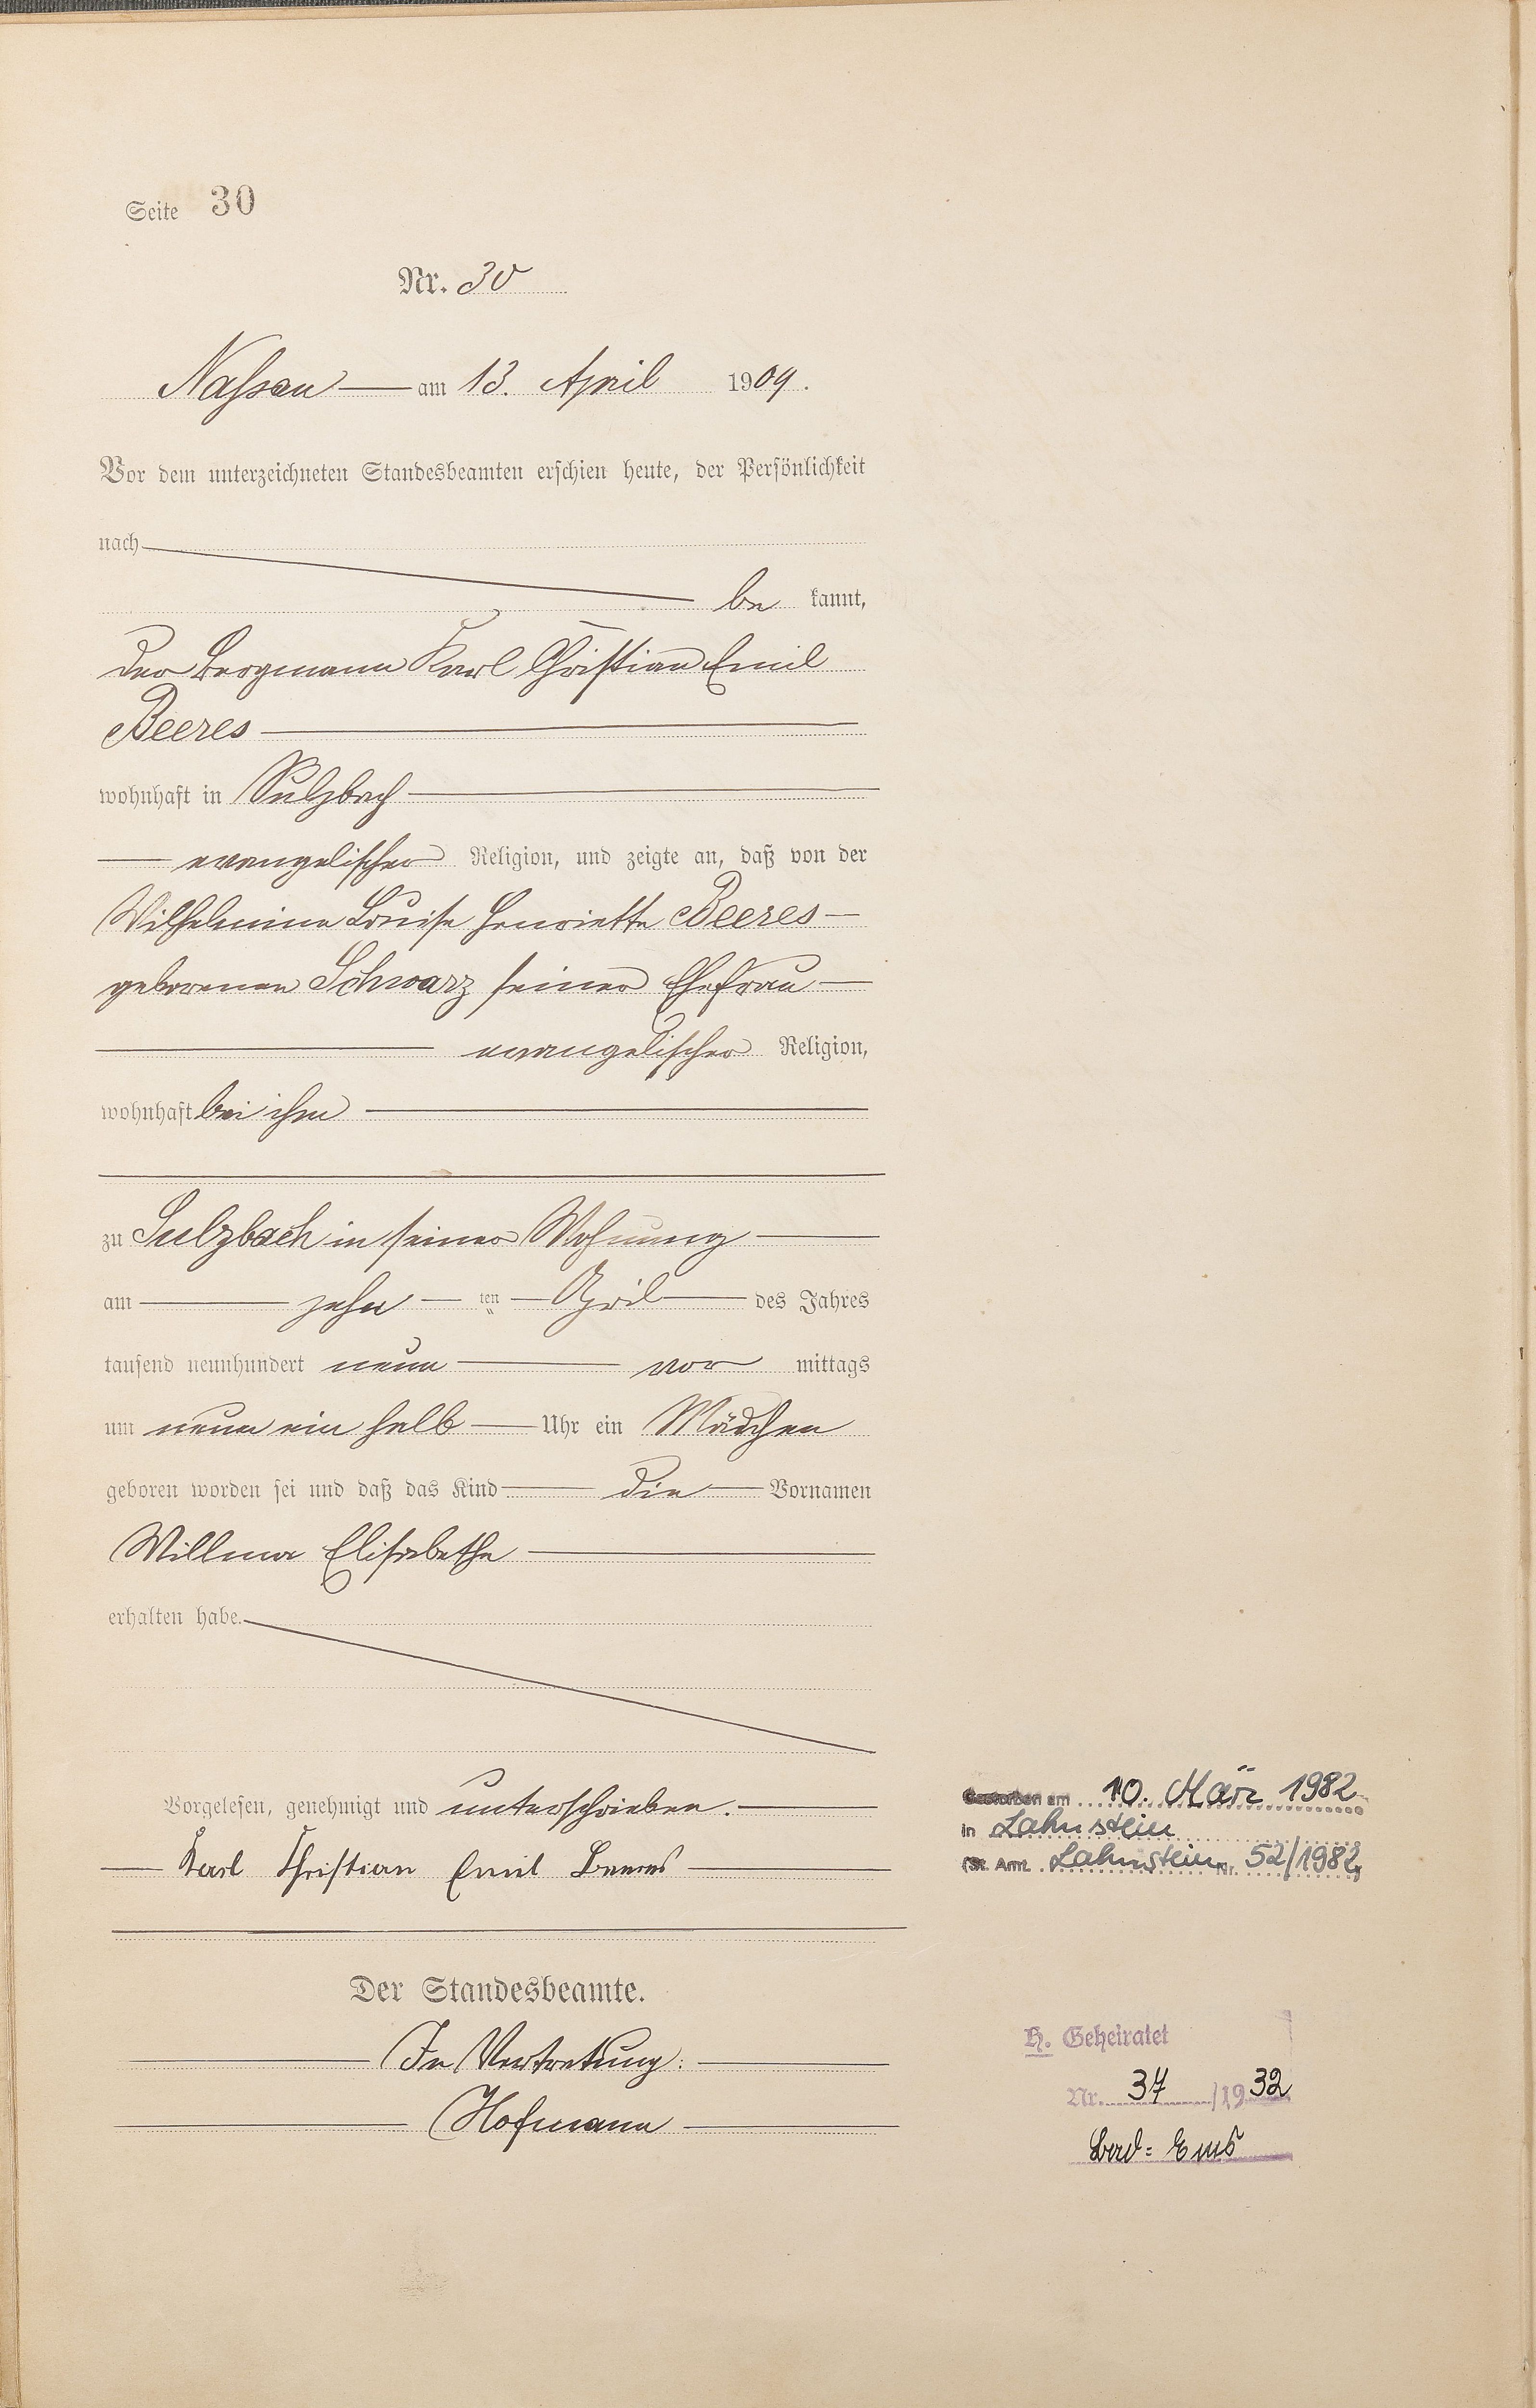 Seite 30
Nr. 30
Nassau am 13. April 1909.
Vor dem unterzeichneten Standesbeamten erschien heute, der Persönlichkeit
nach
be kannt,
der Bergmann Karl Christian Emil
Beeres
wohnhaft in Sulzbach
evangelischer Religion, und zeigte an, daß von der
Wilhelmine Louise Henriette Beeres
geborenen Schwarz seiner Ehefrau
evangelischer Religion,
wohnhaft bei ihm
zu Sulzbach in seiner Wohnung
am zehn ten April des Jahres
tausend neunhundert neun vor mittags
um neun ein halb Uhr ein Mädchen
geboren worden sei und daß das Kind die Vornamen
Willma Elisabethe
erhalten habe.
Vorgelesen, genehmigt und unterschrieben.
Karl Christian Emil Beeres
Der Standesbeamte.
In Vertretung:
Hofmann
Gestorben am 10. März 1982
in Lahnstein
(St. Amt. Lahnstein Nr. 52/1982)
H. Geheiratet
Nr. 37 /1932
Bad-Ems